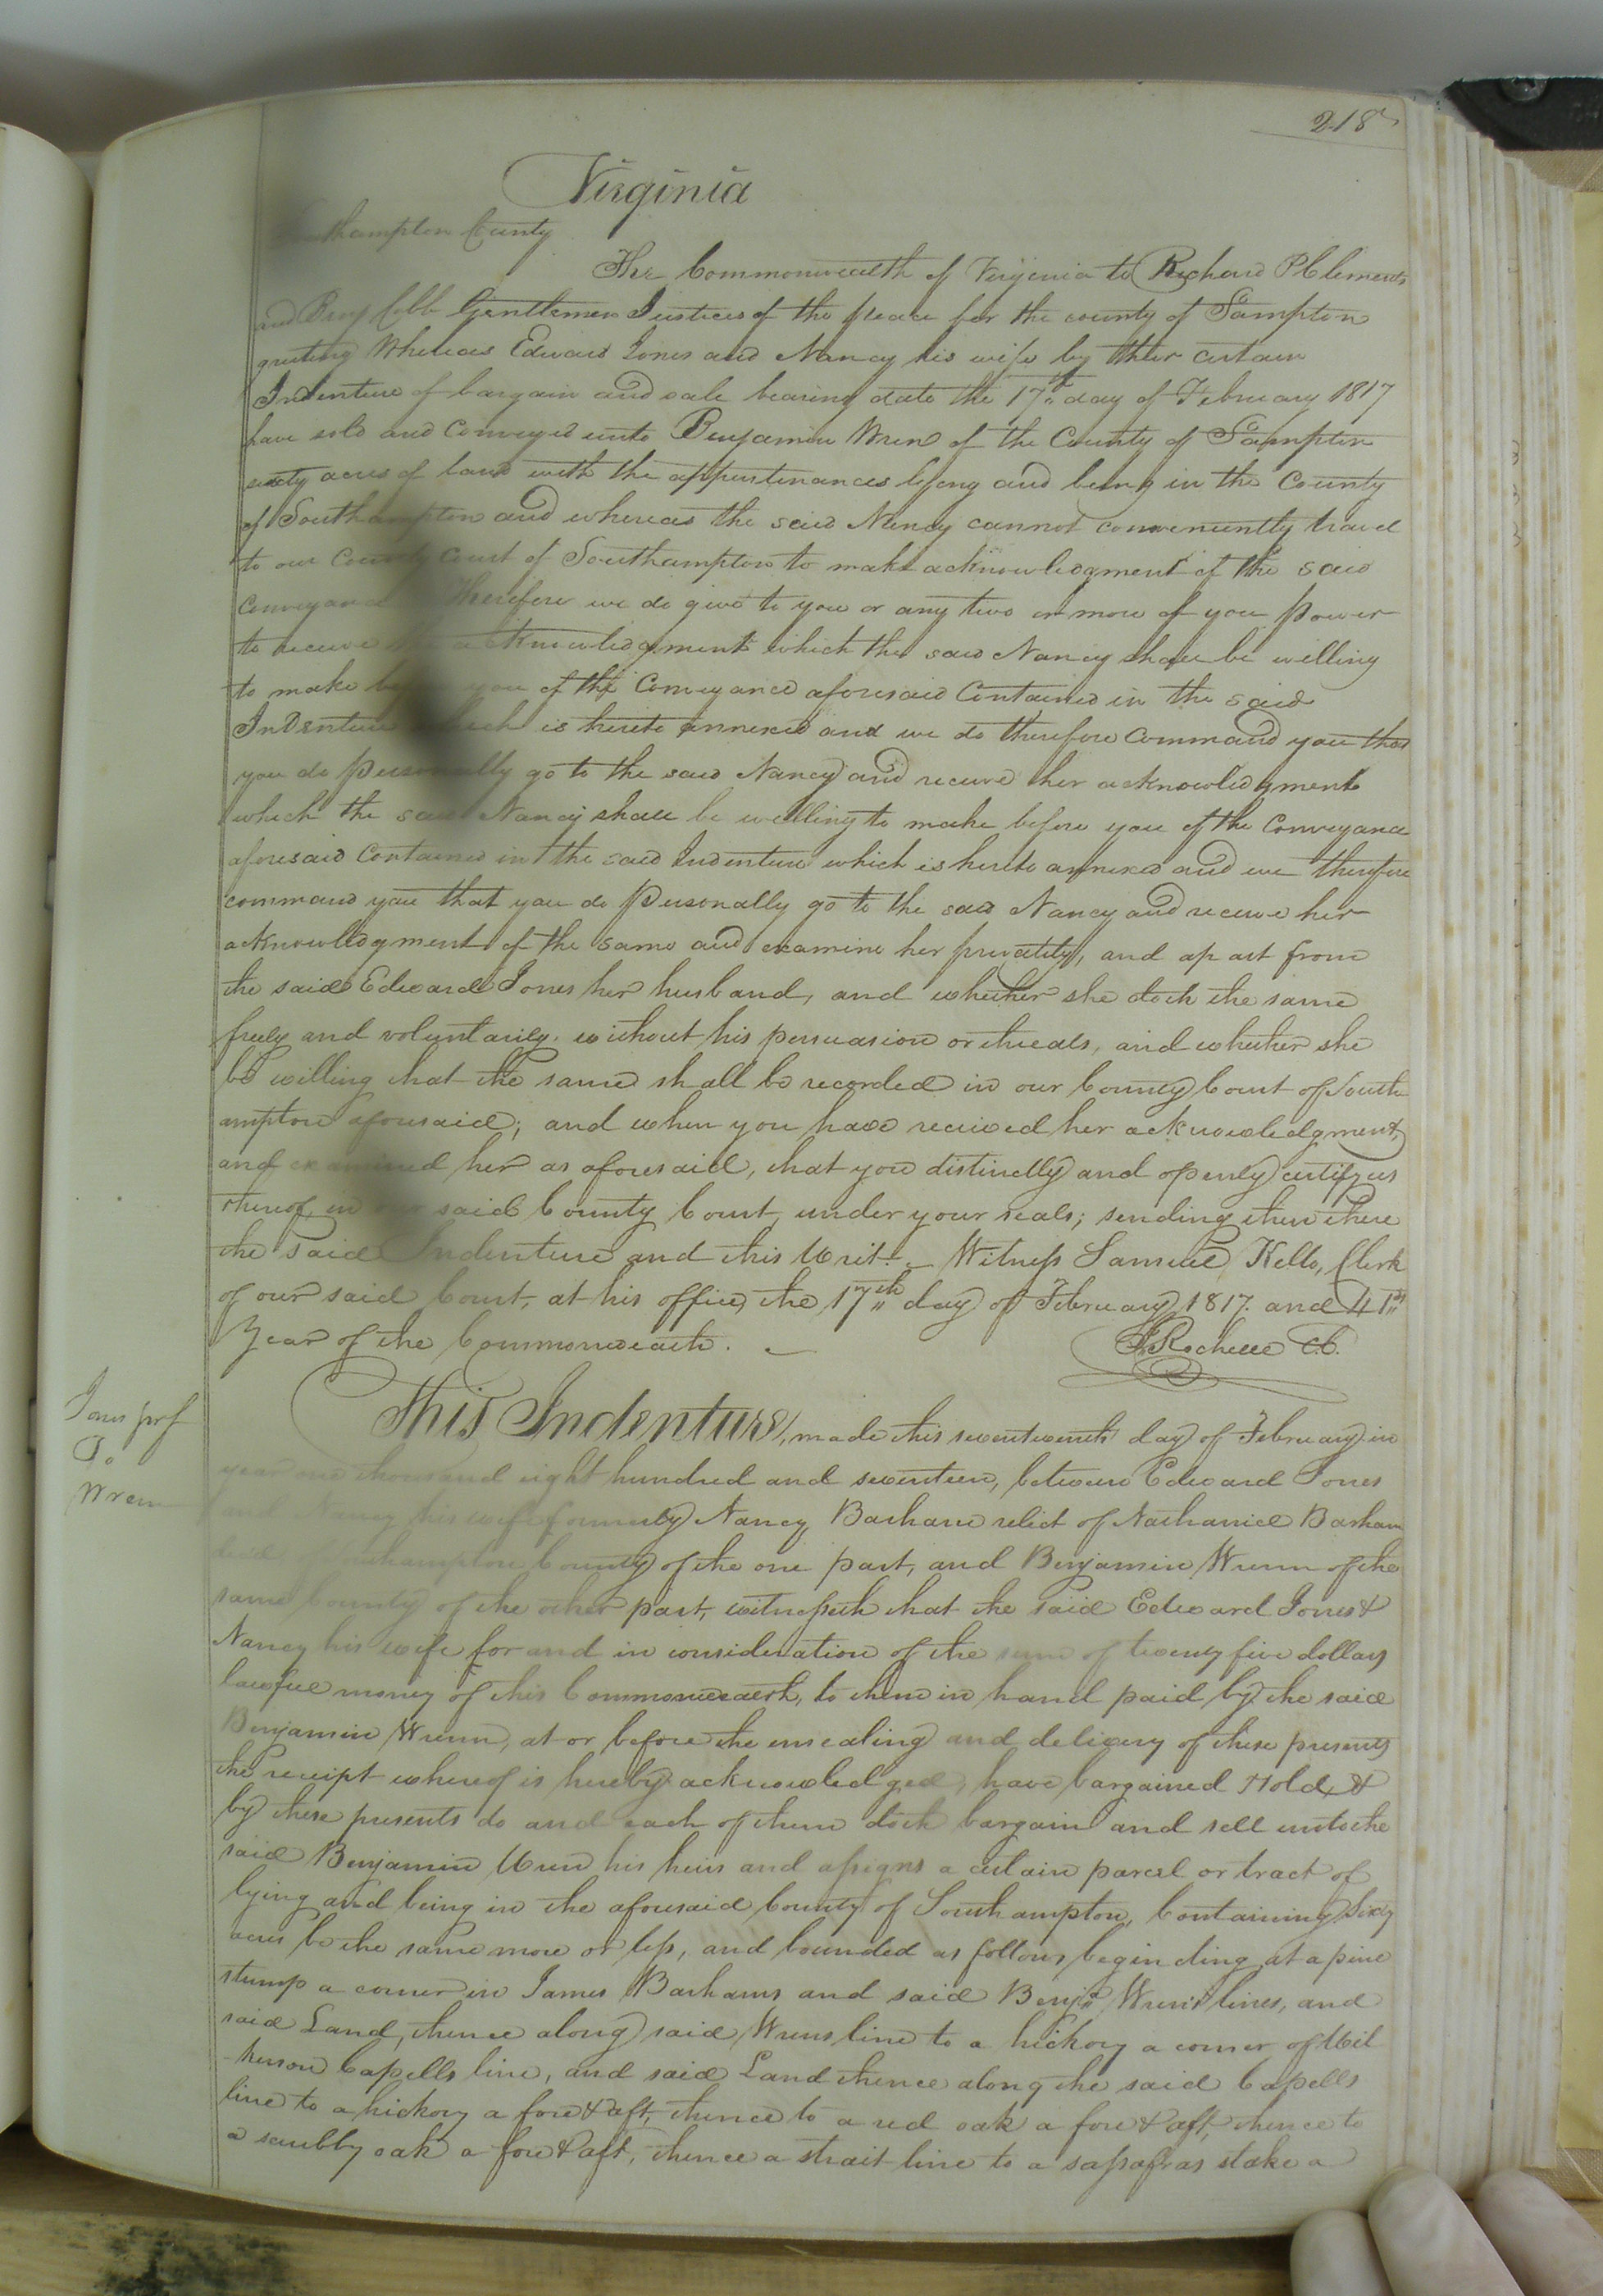 218
Virginia
Southampton County
The Commonwealth of Virginia to Richard P Clements
and Benj Cobb Gentlemen Justices of the peace for the county of Sampton
greeting Whereas Edward Jones and Nancy his wife by their certain
Indenture of bargain and sale bearing date the 17th day of February 1817
have sold and Conveyed unto Benjamin Wren of the County of Sampton
sixty acres of land with the appurtenances lying and being in the County
of Southampton and whereas the said Nancy cannot conveniently travel
to our County Court of Southampton to make acknowledgment of the said
Conveyance Therefore we do give to you or any two or more of you power
to receive the acknowledgment which the said Nancy shall be willing
to make before you of the Conveyance aforesaid Contained in the said
Indenture which is hereto annexed and we do therefore Command you that
you do personally go to the said Nancy and receive her acknowledgment
which the said Nancy shall be willing to make before you of the Conveyance
aforesaid Contained in the said Indenture which is hereto annexed and we therefore
command you that you do personally go to the said Nancy and receive her
acknowledgment of the same and examine her privately, and apart from
the said Edward Jones her husband, and whether she doth the same
freely and voluntarily, without his persuasion or threats, and whether she
be willing that the same shall be recorded in our County Court of South
ampton aforesaid; and when you have received her acknowledgment,
and examined her as aforesaid, that you distinctly and openly certify us
thereof, in our said County Court, under your seals; sending then there
the said Indenture and this Writ. Witness Samuel Kello, Clerk
of our said Court, at his office, the 17th day of February 1817. and 41st
Year of the Commonwealth.
J. Rochelle C.
Jones &
To
Wren
This Indenture, made this seventeenth day of February in
year one thousand eight hundred and seventeen, between Edward Jones
and Nancy his wife formerly Nancy Barham relict of Nathaniel Barham
decd of Southampton County of the one part, and Benjamin Wrenn of the
same County of the other part, witnesseth that the said Edward Jones &
Nancy his wife for and in consideration of the sum of twenty five dollars
lawful money of this Commonwealth, to them in hand paid by the said
Benjamin Wrenn, at or before the ensealing and delivery of these presents
the receipt whereof is hereby acknowledged, have bargained & sold, &
by these presents do and each of them doth bargain and sell unto the
said Benjamin Wren his heirs and assigns a certain parcel or tract of
lying and being in the aforesaid County of Southampton, Containing Sixty
acres be the same more or less, and bounded as follows, begin ding at a pine
stump a corner in James Barhams and said Benja Wren's lines, and
said Land, thence along said Wrens line to a hickory a corner of Wil
kerson Capells line, and said Land thence along the said Capells
line to a hickory a fore & aft, thence to a red oak a fore & aft, thence to
a scrubby oak a fore & aft, thence a strait line to a sassafras stake a